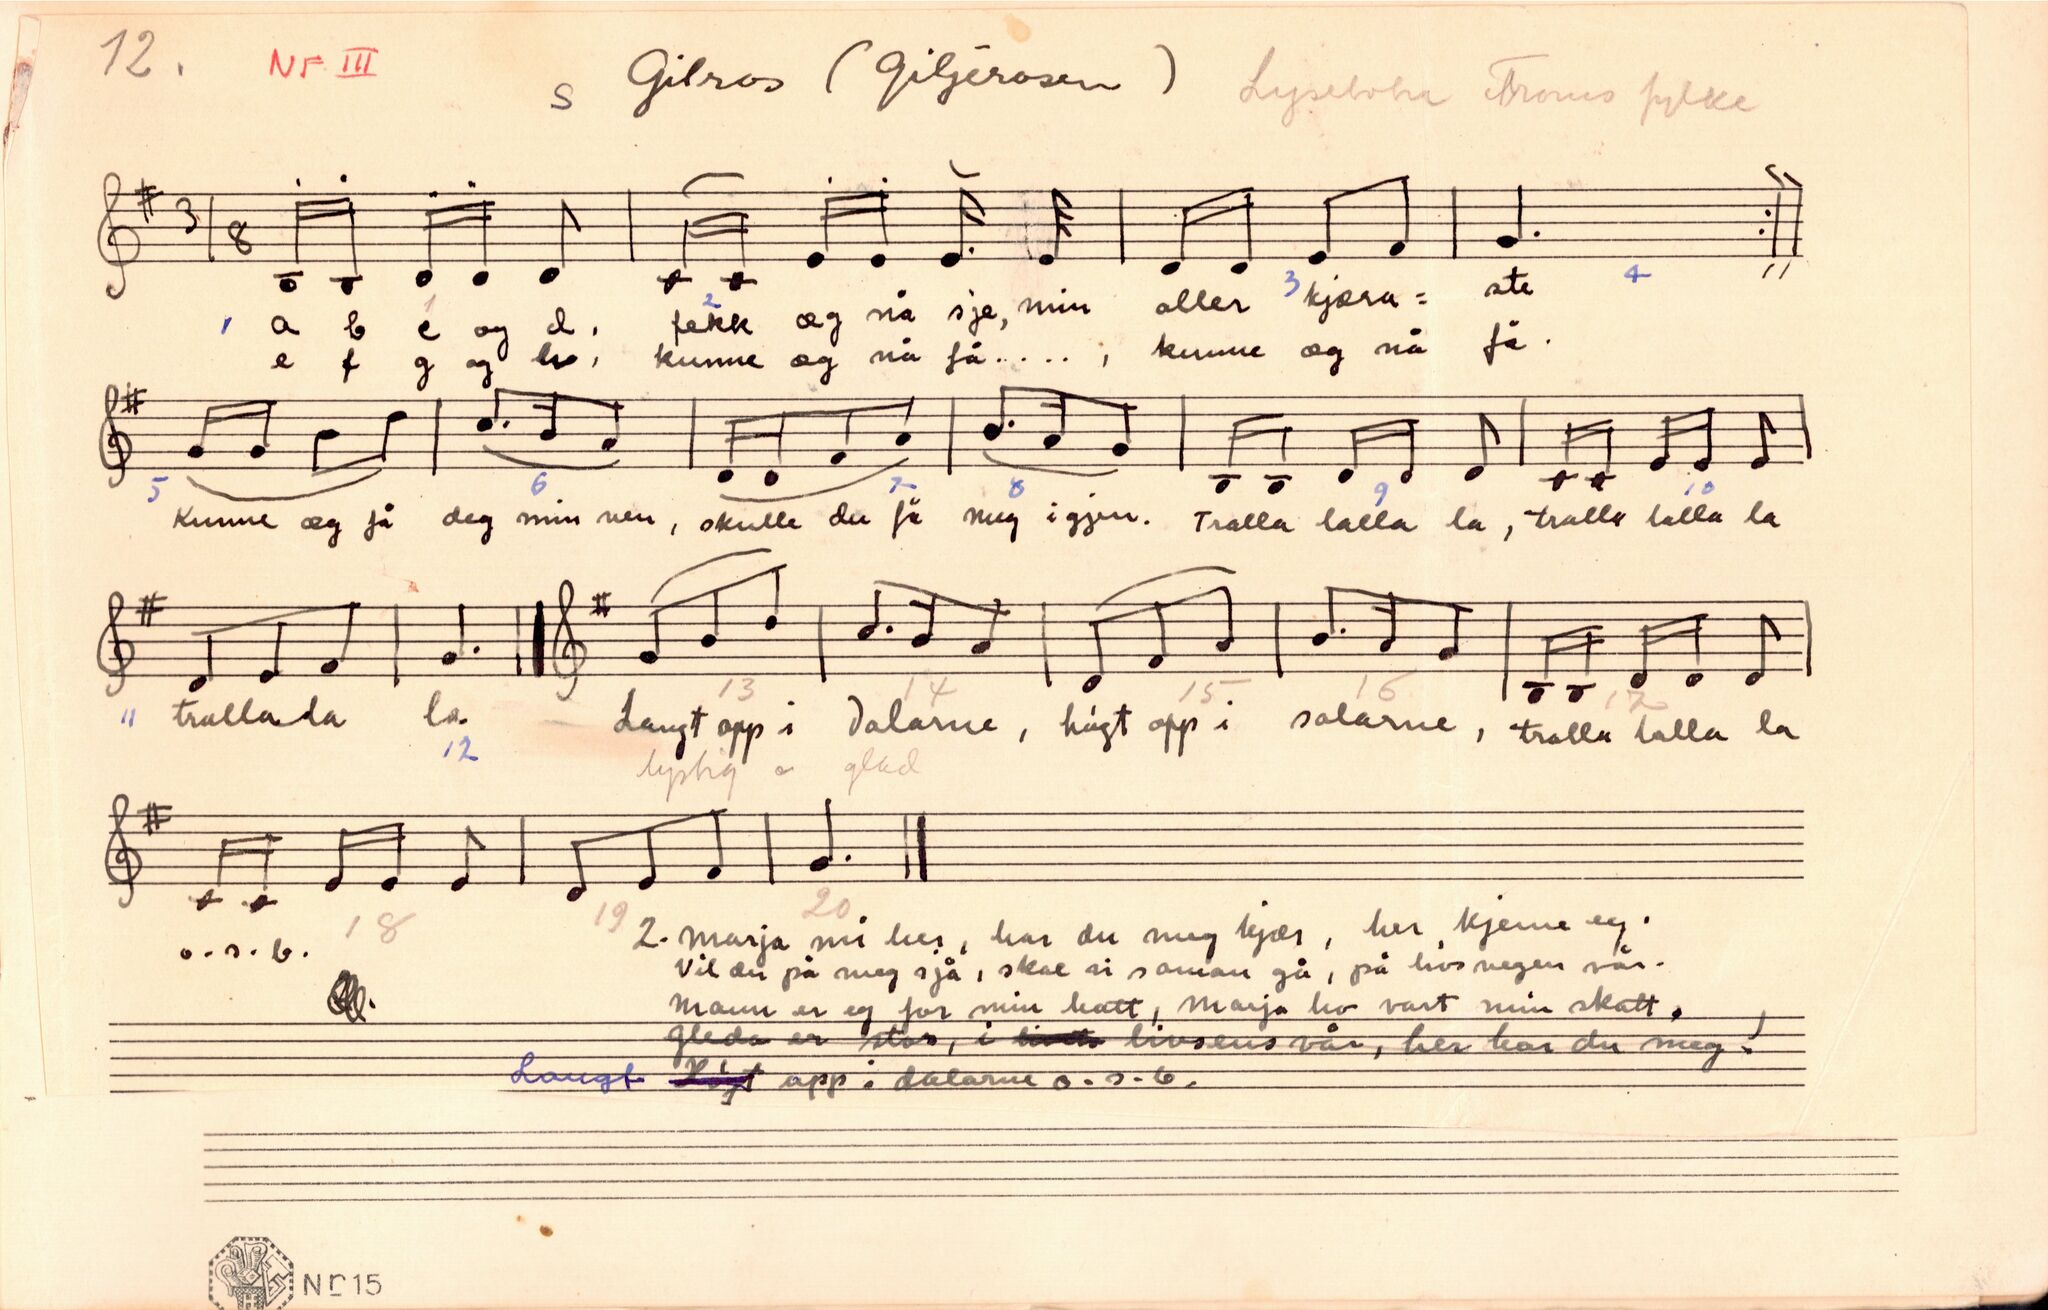 12. Nr III S Gilros (Giljérosen) Troms fylke
3/8
1 2 3 4
a b c og d, fekk æg nå sje, min aller kjæra= ste
e f g og ho, kunne æg nå få....., kunne æg nå få.
5 6 7 8 9 10
Kunne æg få deg min ven, skulle du få meg igjen. Tralla lalla la, tralla lalla la
13 14 15 16 17
11 trallada la. Langt opp i dalarne, høgt opp i salarne, tralla lalla la
12 lystig o glad
18 19 20
o.s.b. 2. Marja mi her, har du meg kjær, her kjeme eg.
Vil du på meg sjå, skal vi saman gå, på livsvegen vår.
Mann er eg for min hatt, Marja ho vart min skatt.
Gleda er stor, i livsens vår, her har du meg!
Langt opp i dalarne o.s.b.
Nr 15